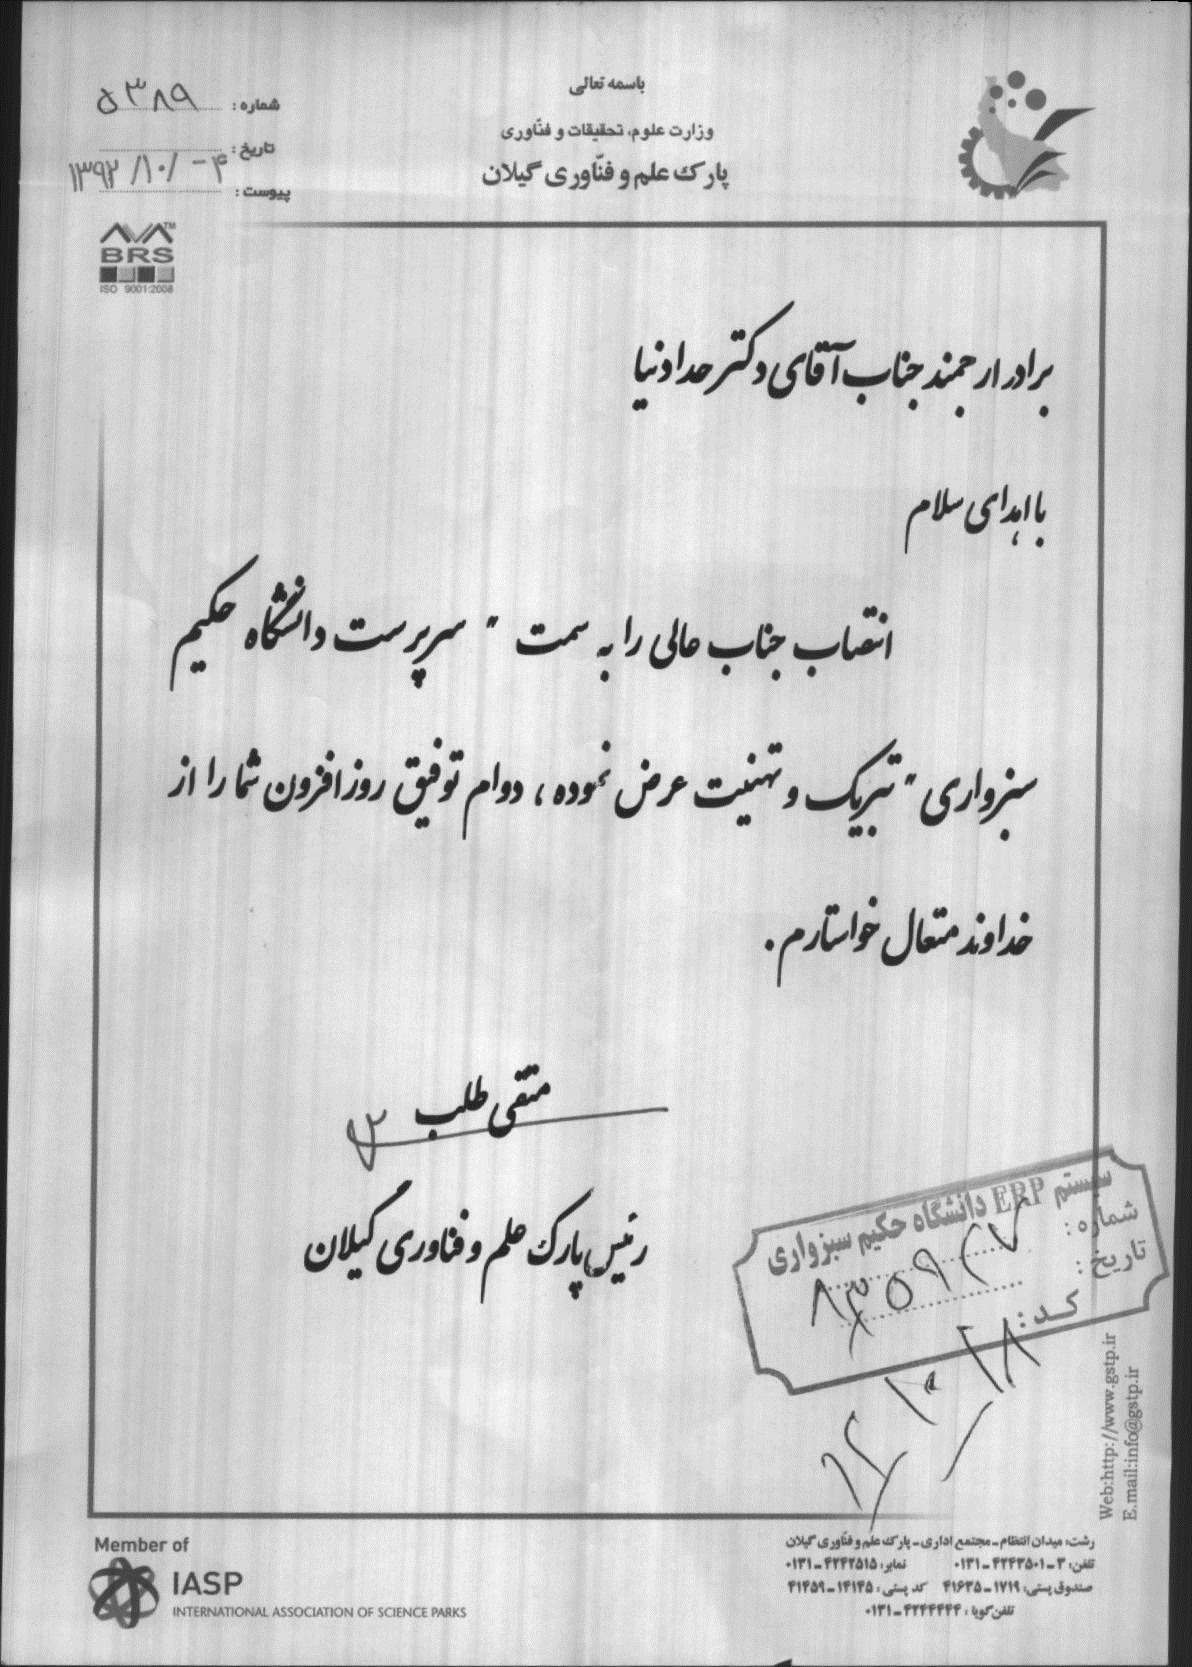 باسمه تعالی
وزارت علوم، تحقیقات و فنّاوری
پارک علم و فنّاوری گیلان
شماره : ۵۳۸۹
تاریخ : ۱۳۹۲/۱۰/-۴
پیوست :
BRS
ISO 9001:2008
برادر ارجمند جناب آقای دکتر حدادنیا
با اهدای سلام
انتصاب جناب عالی را به سمت " سرپرست دانشگاه حکیم
سبزواری " تبریک و تهنیت عرض نموده ، دوام توفیق روز افزون شما را از
خداوند متعال خواستارم .
متقی طلب
رئیس پارک علم و فناوری گیلان
سیستم ERP دانشگاه حکیم سبزواری
شماره :
تاریخ :
کد :
Web:http://www.gstp.ir
E.mail:info@gstp.ir
Member of
IASP
INTERNATIONAL ASSOCIATION OF SCIENCE PARKS
رشت، میدان انتظام ـ مجتمع اداری ـ پارک علم و فنّاوری گیلان
تلفن: ۳ ـ ۴۲۴۳۵۰۱ ـ ۰۱۳۱ نمابر: ۴۲۴۲۵۱۵ ـ ۰۱۳۱
صندوق پستی: ۱۷۱۹ ـ ۴۱۶۳۵ کد پستی: ۱۴۱۴۵ ـ ۴۱۴۵۹
تلفن گویا : ۴۲۴۴۴۴۴ ـ ۰۱۳۱